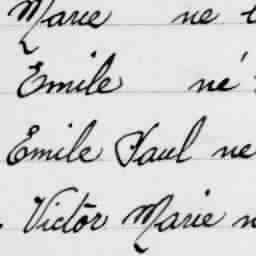 Marie ne
Emile né
Emile Paul ne
Victor Marie n